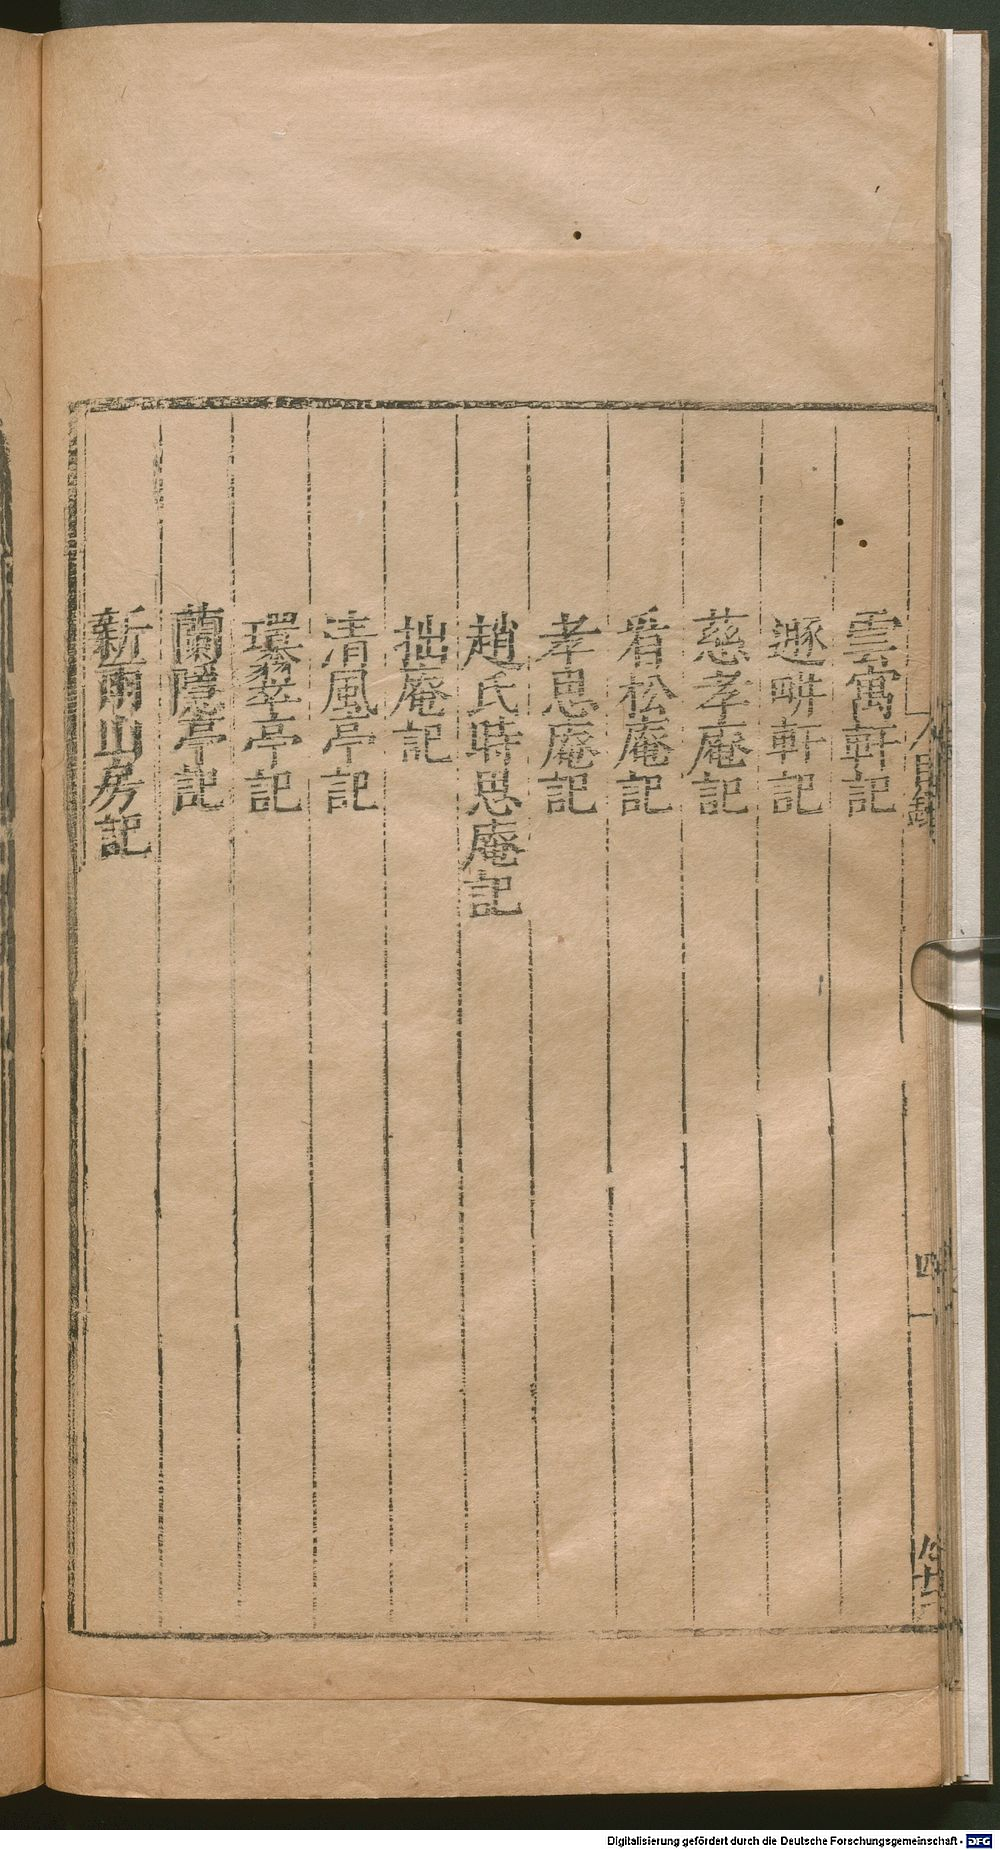 雲寓軒記
遯畊軒記
慈孝庵記
看松庵記
孝思庵記
趙氏時思庵記
拙庵記
清風亭記
環翠亭記
蘭隱亭記
新雨山房記
目錄
四
Digitalisierung gefördert durch die Deutsche Forschungsgemeinschaft - DFG